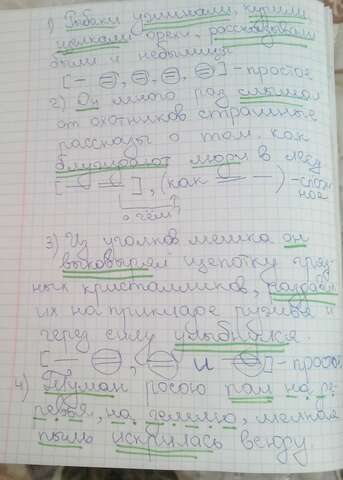 1) Рыбаки ужинали, курили,
щелкали орехи, рассказывали
были и небылицы
[- ⊜, ⊜, ⊜, ⊜] - простое
2) Он много раз слышал
от охотников страшные
рассказы о том, как
блуждают люди в лесу
], (как
) - слож
ное
о чём?
3) Из уголков мешка он
выковырял щепотку гряз
ных кристалликов,
их на прикладе ружья и
через силу улыбнулся.
[— ⊜, ⊜ и ⊜] - простое
4) Туман росою пал на де
ревья, на землю, мелкая
пыль искрилась всюду.